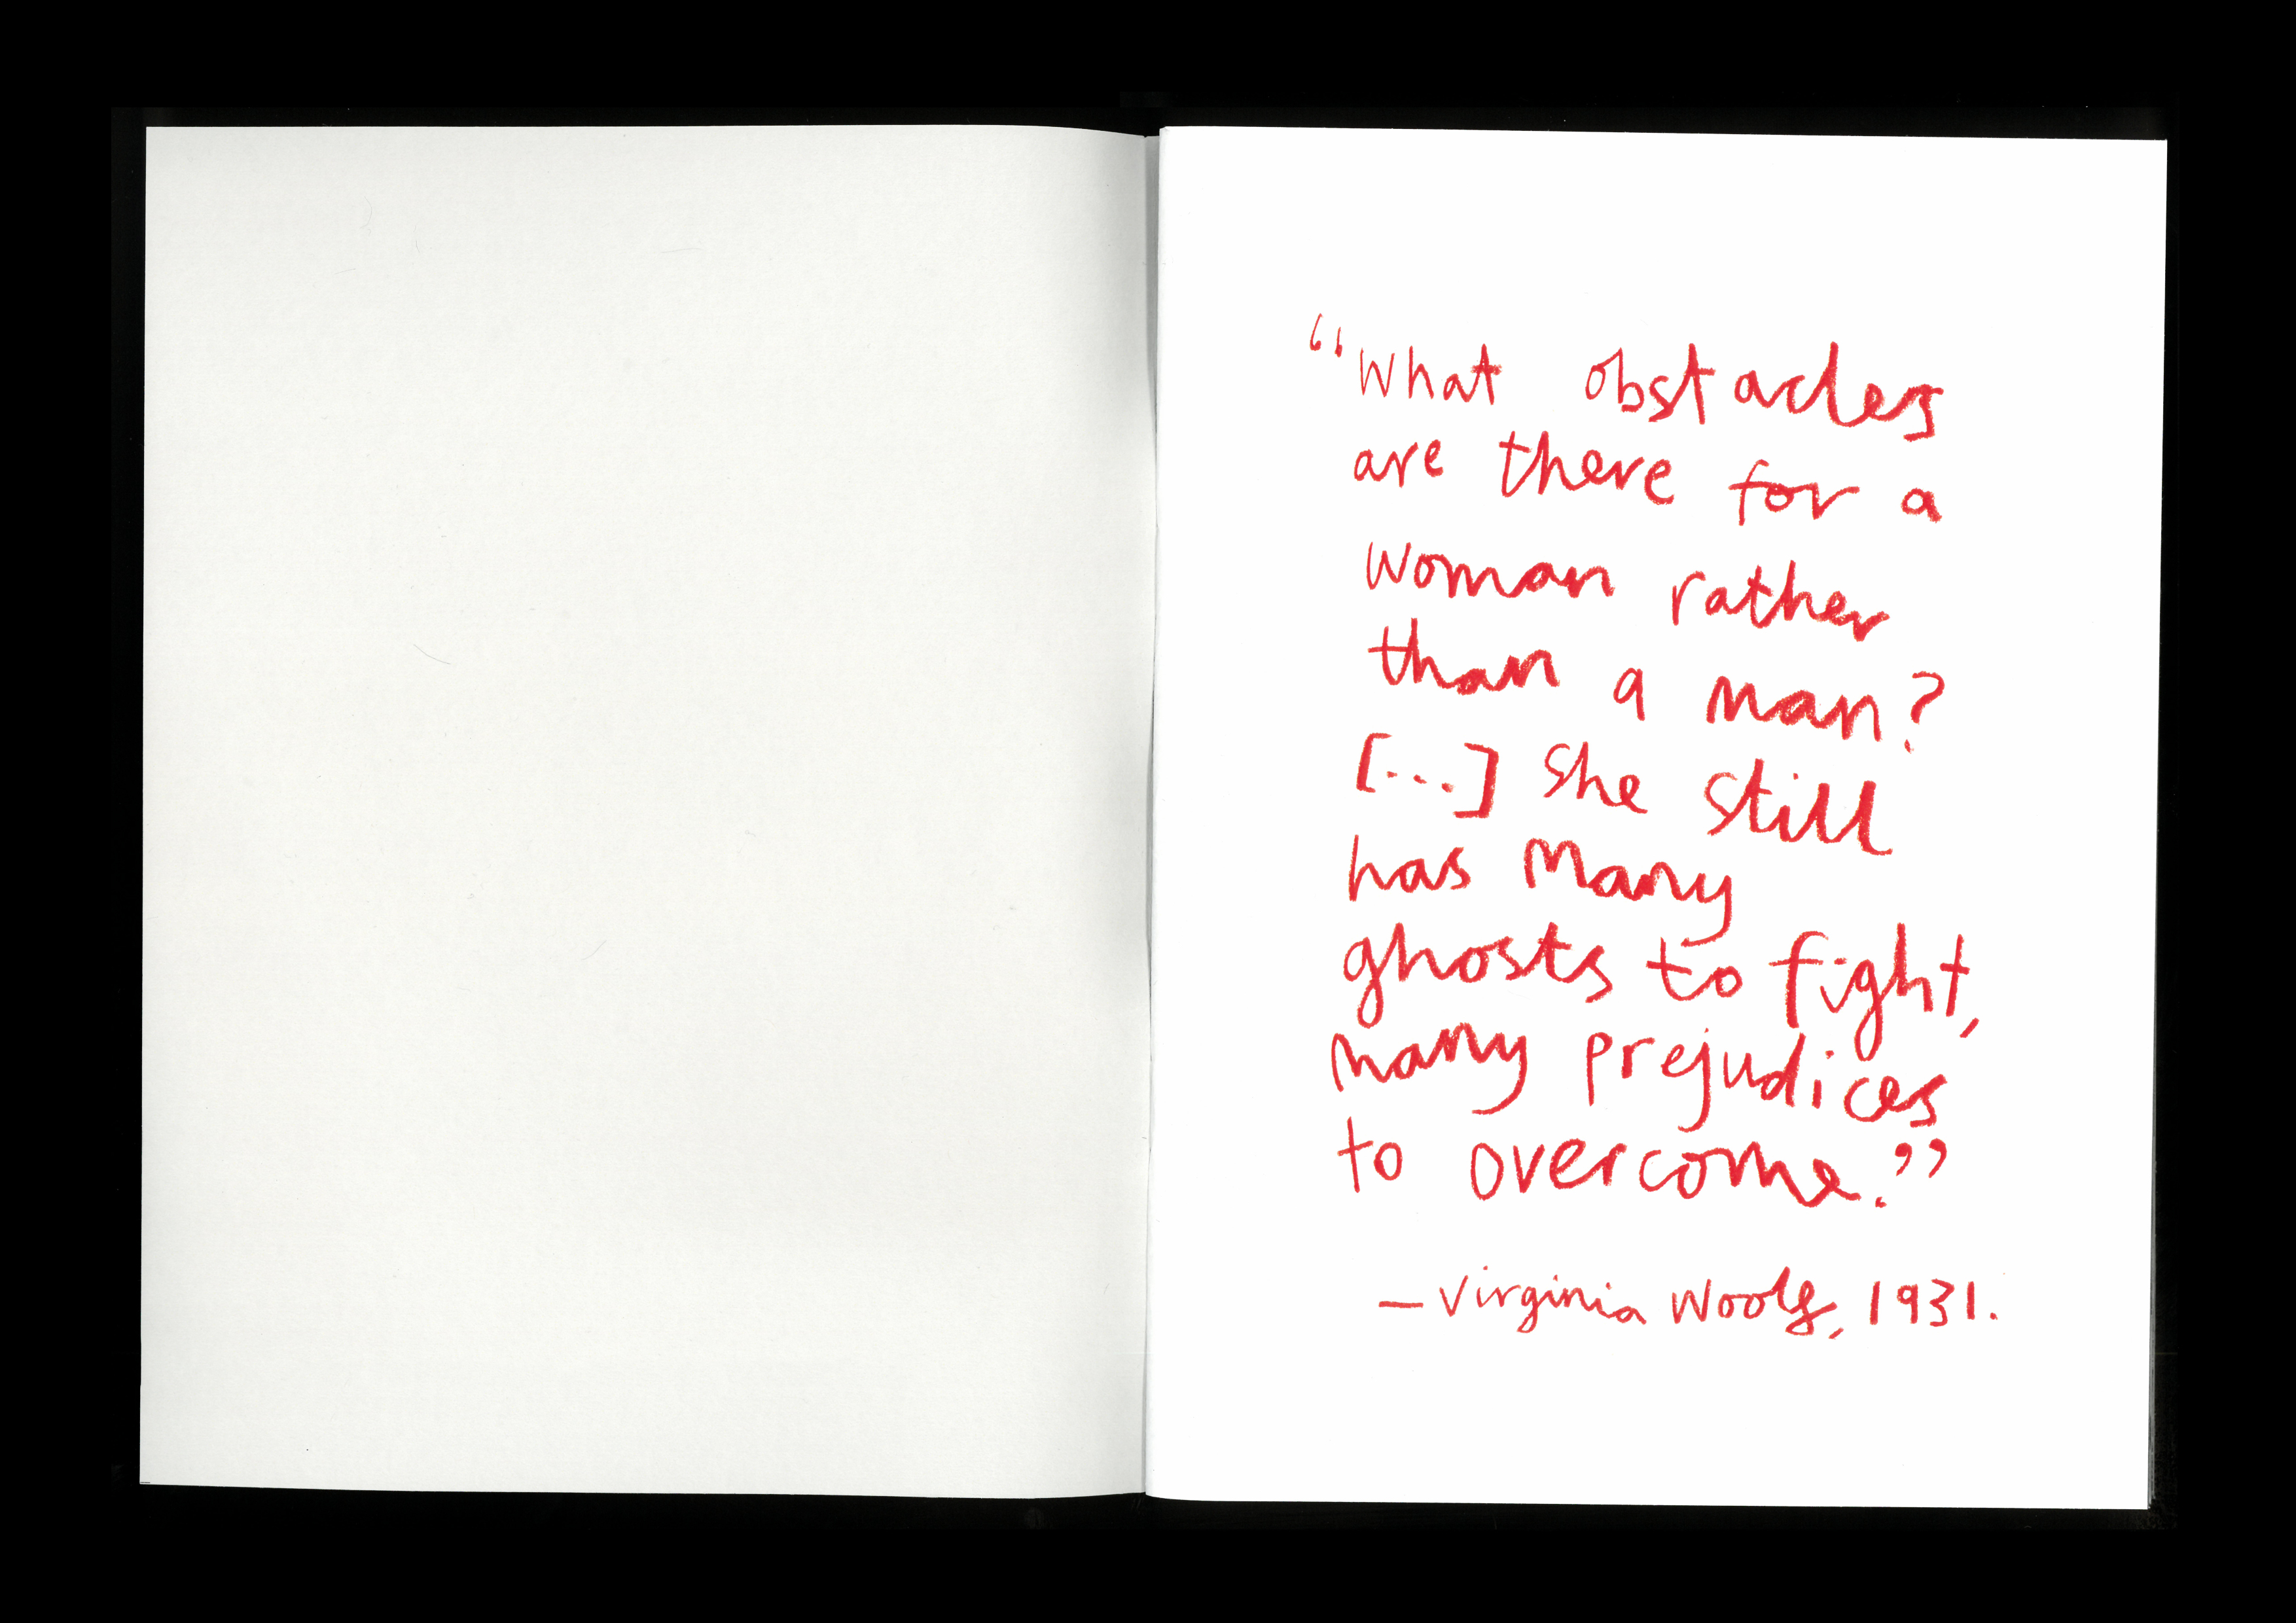 “What obstacles
are there for a
woman rather
than a man?
[...] She still
has many
ghosts to fight,
many prejudices
to overcome.”
— Virginia Woolf, 1931.